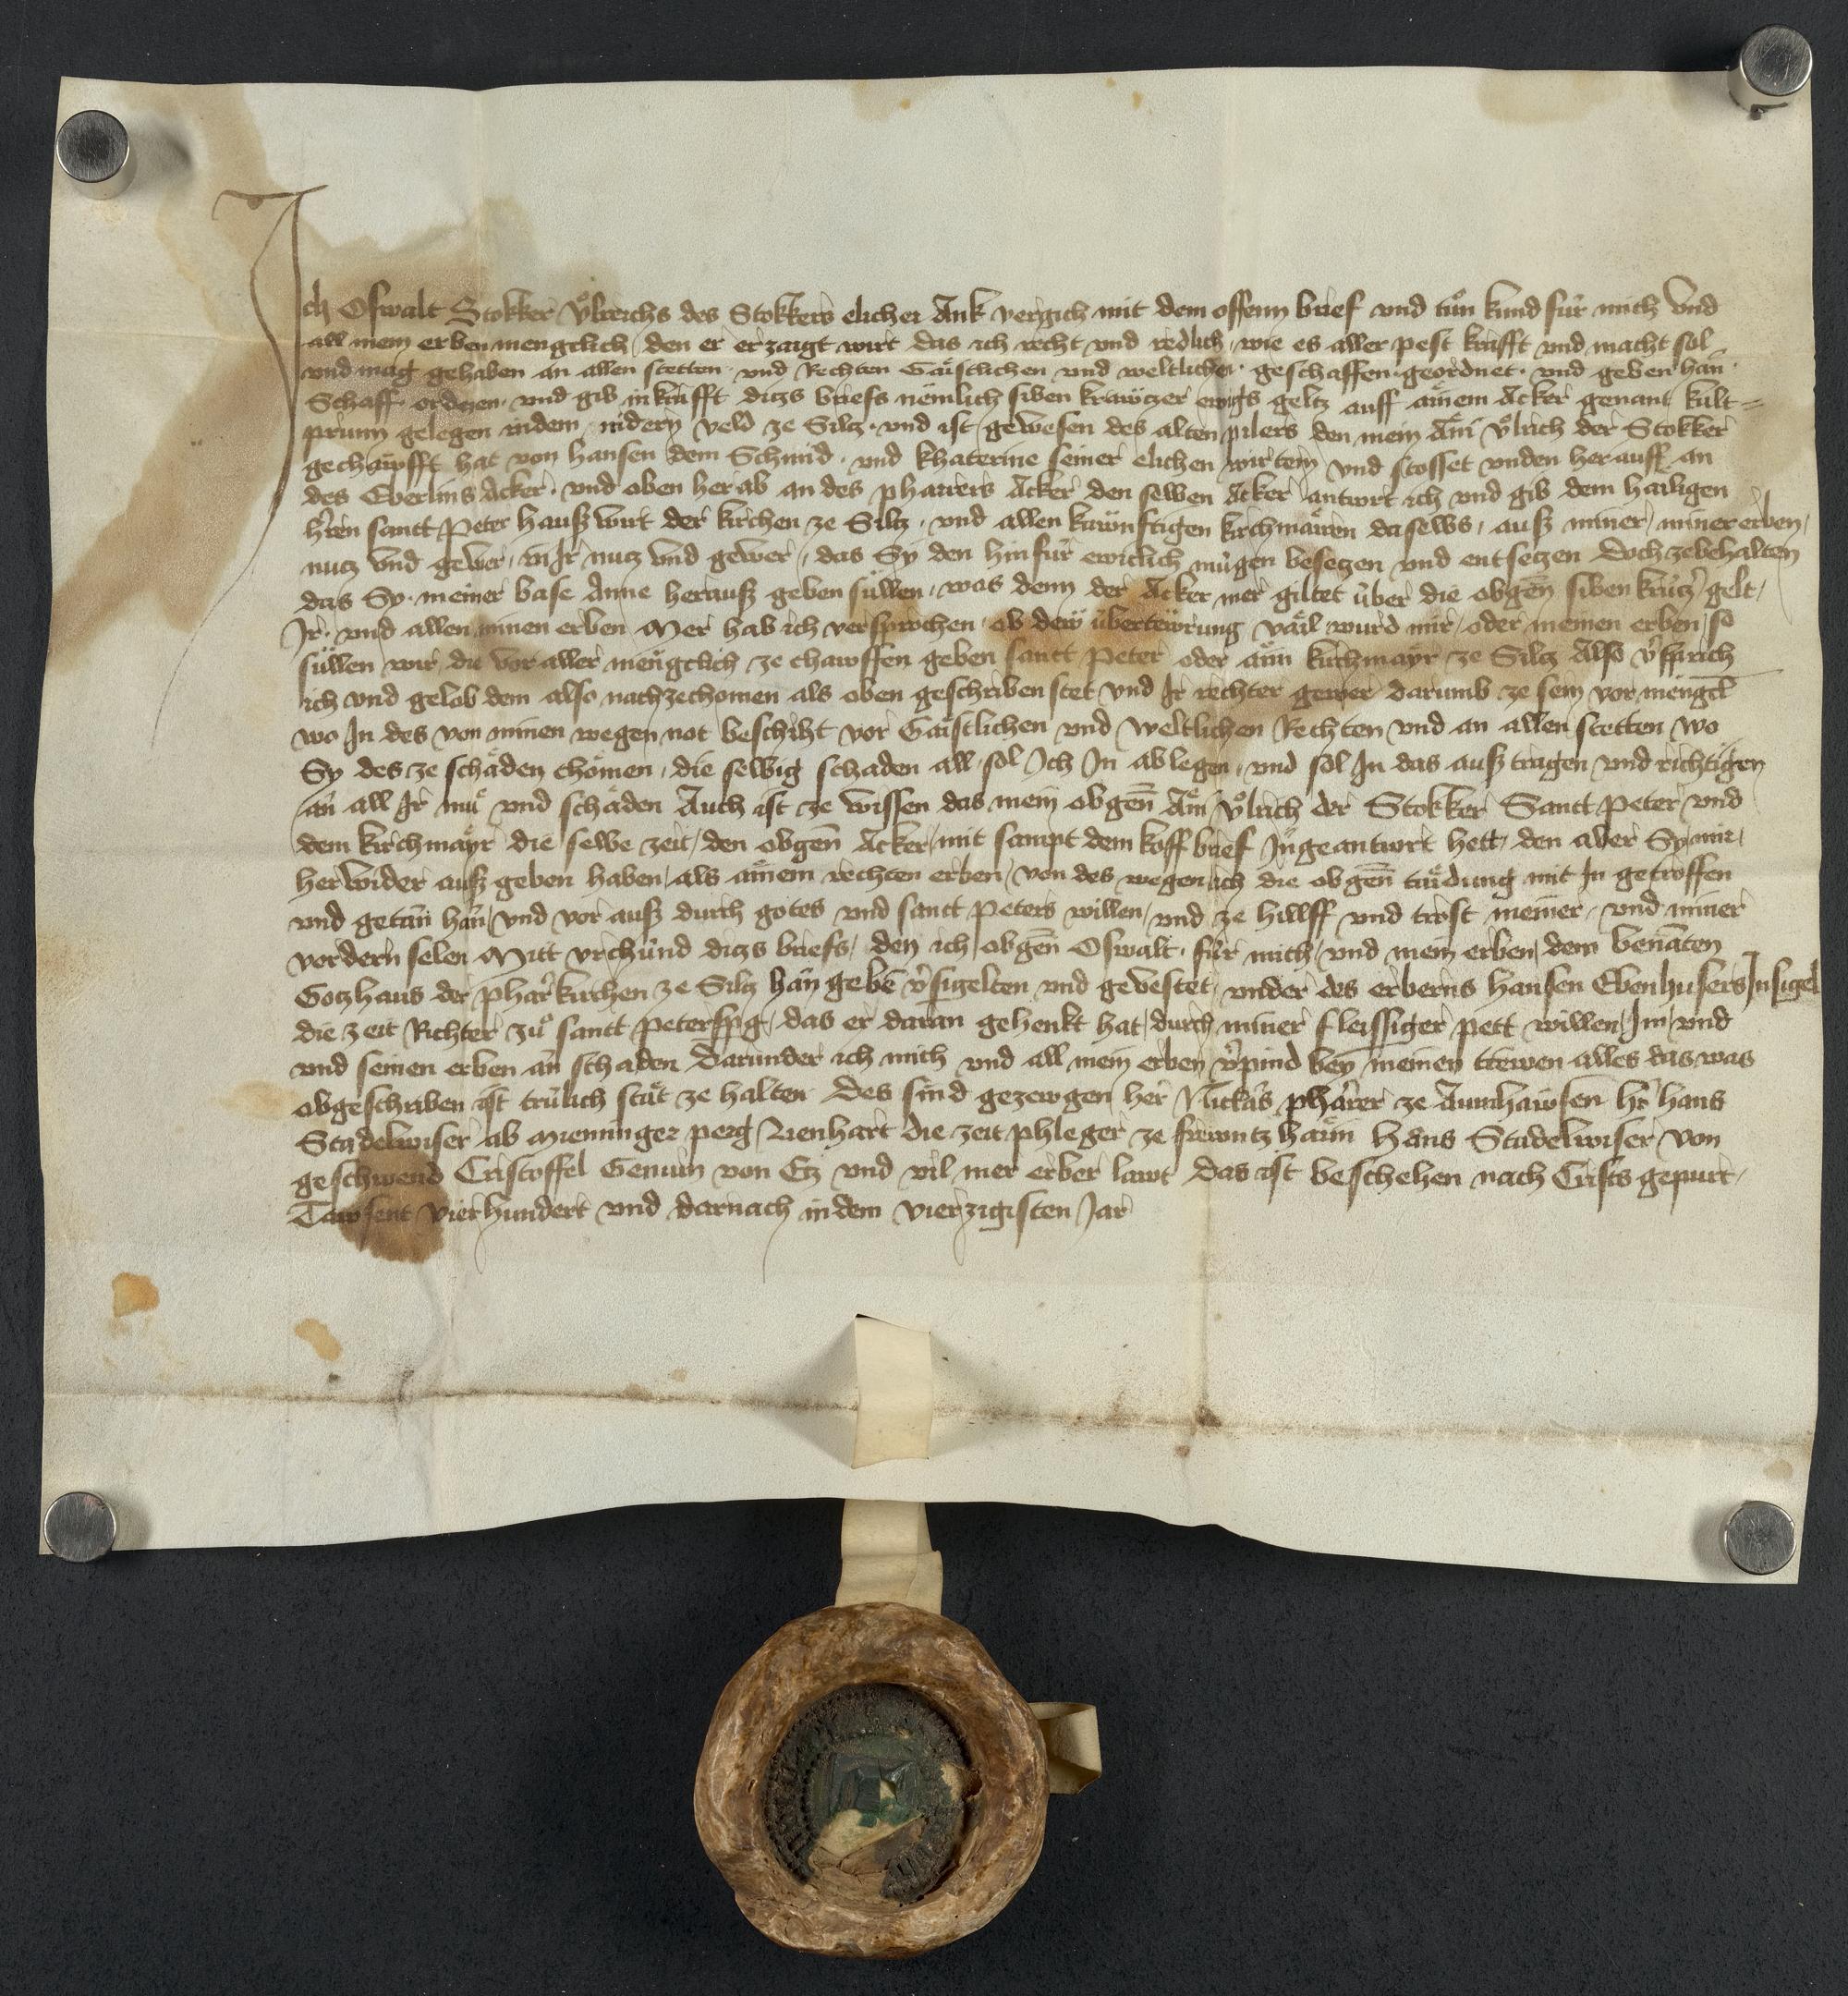 Ich Oswalt Stokker Ůlreichs des Stokkers elicher Änk vergich mit dem offenn brief vnd tůn kund für mich vnd
all mein erben mengclich den er erzaigt wirt das ich recht vnd redlich wie es aller pest krafft vnd macht sol
vnd mag gehaben an allen stetten vnd Rechten Gaistlichen vnd weltlichen geschaffen geordnet vnd geben han
Schaff orden vnd gib in krafft diczs briefs nëmlich siben krawczer ewigs geltz auff ainem Acker genant kalt=
prunn gelegen in dem nidern veld ze Silcz vnd ist gewesen des alten pilers den mein Äni Ůlrich der Stokker
gechawfft hat von hansen dem Schmid vnd khaterine seiner elichen wirtein vnd stosset vnden herauff an
des Eberlins Acker vnd oben herab an des pharrers Acker den selben Acker antwort ich vnd gib dem hailigen
hren sanct Peter haußwirt der kirchen ze Siltz vnd allen kawnftigen kirchmairen daselbs auß miner miner erben
nutz vnd gewer in Ir nutz vnd gewer das Sy den hinfür ewiclich mügen besetzen vnd entsetzen doch ze behalten
das Sy meiner base Anne herauß geben süllen was denn der Acker mer giltet über die obgen siben krützr gelt
Ir vnd allen iren erben Mer hab ich versprochen ob dew übertewrung vail wurd mir oder meinen erben so
süllen wir die vor aller mengclich ze chawffen geben sanct Peter oder aim kirchmayr ze Silcz Also vsprich
ich vnd gelob dem also nachzechomen als oben geschriben stet vnd Ir rechter gewer darumb ze sein vor mengcl
wo In des von minen wegen not beschiht vor Gaistlichen vnd weltlichen Rechten vnd an allen stetten wo
Sy des ze schaden chömen die selbig schaden all sol Ich In ablegen vnd sol In das auß tragen vnd richtigen
an all Ir mü vnd schäden Auch ist ze wissen das mein obgen Äni Ůlrich der Stokker Sanct Peter vnd
dem kirchmayr die selbe zeit den obgen Acker mit sampt dem koffbrief Ingeantwort hett den aber Sy mir
herwider auß geben haben als ainem rechten erben von des wegen ich die obgen taidung mit In getroffen
vnd getan han vnd vor auß durch gotes vnd sanct Peters willen vnd ze hillff vnd trost meiner vnd miner
vordern selen Mitt vrchünd diczs briefs den ich obgen Oswalt für mich vnd mein erben dem benanten
Gotzhaus der pharrkirchen ze Silcz han geben vsigelten vnd gevestet vnder des erberns hansen Ebenhusers Insigel
die zeit Richter zů sanct Peterspg das er daran gehenkt hat durch miner fleissiger pett willen Im vnd
vnd seinen erben an schaden Darunder ich mich vnd all mein erben vpind bey meinen trewen alles das was
obgeschriben ist trülich stät ze halten Des sind gezewgen her Niclas pharrer ze Awnhawsen hr hans
Stadelwiser ab mieminger perg Lienhart die zeit phleger ze frewntzhaim Hans Stadelwiser von
geschwend Cristoffel Genuin von Etz vnd vil mer erber lawt Das ist beschehen nach Crists gepurt
Tawsent vierhundert vnd darnach in dem vierzigisten Jar